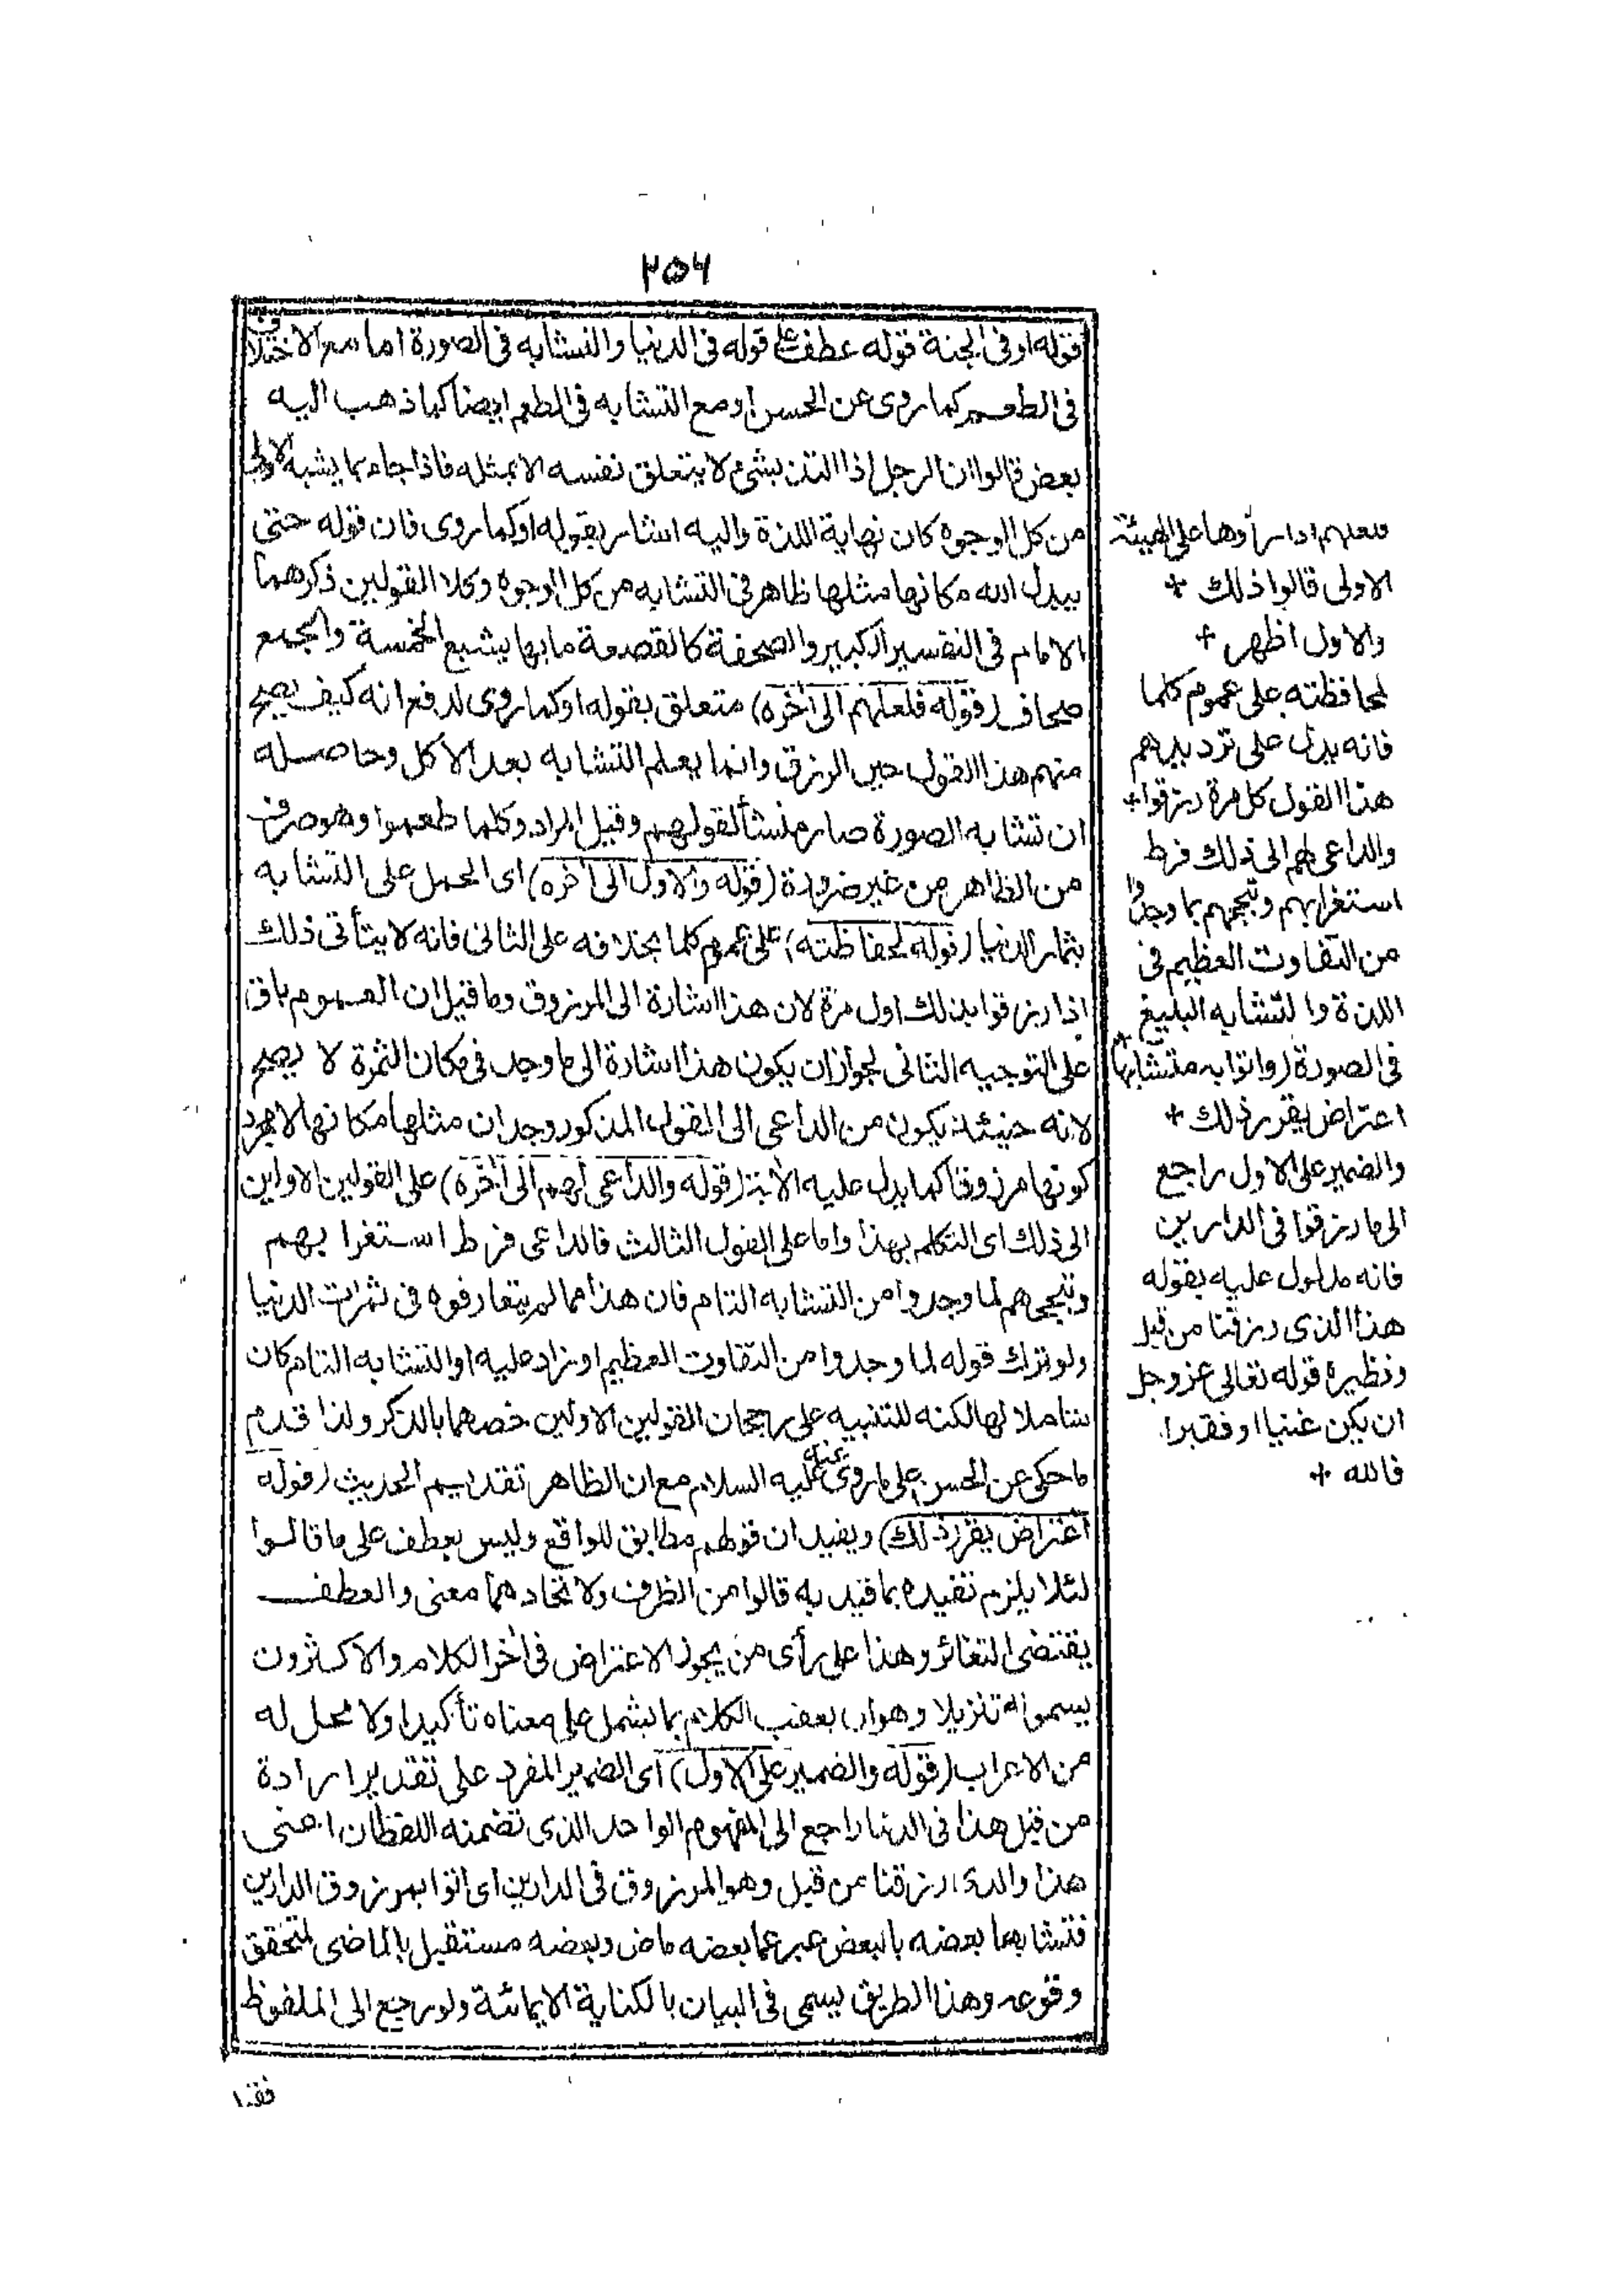 ٢٥٦
قوله او فى الجنة قوله عطف على قوله فى الدنيا والتشابه فى الصورة اما مع الاختلاف
فى الطعم كما روى عن الحسن او مع التشابه فى الطعم ايضا كما ذهب اليه
بعض قالوا ان الرجل اذا التذ بشئ لا يتعلق نفسه الا بمثله فاذا جاء بما يشبه الاولى
من كل الوجوه كان نهاية اللذة واليه اشار بقوله او كما روى فان قوله حتى
يبدل الله مكانها مثلها ظاهر فى التشابه من كل الوجوه وكلا القولين ذكرهما
الامام فى التفسير الكبير والصحفة كالقصعة ما بها يشبع الخمسة والجمع
صحاف (قوله فلعلهم الى آخره) متعلق بقوله او كما روى لدفع انه كيف يصح
منهم هذا القول حين الرزق وانما يعلم التشابه بعد الاكل وحاصله
ان تشابه الصورة صار منشأ لقولهم وقيل المراد وكلما طعموا وهو صرف
من الظاهر من غير ضرورة (قوله والاول الى آخره) اى الحمل على التشابه
بثمار الدنيا (قوله لمحافظته) على عموم كلما بخلافه على الثانى فانه لا يتأتى ذلك
اذا رزقوا بذلك اول مرة لان هذا اشارة الى المرزوق وما قيل ان العموم باق
على التوجيه الثانى لجواز ان يكون هذا اشارة الى ما وجد فى مكان الثمرة لا يصح
لانه حينئذ يكون من الداعى الى القول المذكور وجدان مثلها مكانها لا مجرد
كونها مرزوقا كما يدل عليه الآية (قوله والداعى لهم الى آخره) على القولين الاولين
الى ذلك اى التكلم بهذا واما على القول الثالث فالداعى فرط استغرابهم
وتبجحهم لما وجدوا من التشابه التام فان هذا مما لم يتعارفوه فى ثمرات الدنيا
ولو ترك قوله لما وجدوا من التفاوت العظيم او زاد عليه او التشابه التام كان
شاملا لها لكنه للتنبيه على رجحان القولين الاولين خصهما بالذكر ولذا قدم
ما حكى عن الحسن على ما روى عنه عليه السلام مع ان الظاهر تقديم الحديث (قوله
اعتراض يقرر ذلك) ويفيد ان قولهم مطابق للواقع وليس بعطف على ما قالوا
لئلا يلزم تقيده بما قيد به قالوا من الظرف ولاتحادهما معنى والعطف
يقتضى التغائر وهذا على رأى من يجوز الاعتراض فى آخر الكلام والاكثرون
يسمونه تذييلا وهو ان يعقب الكلام بما يشمل على معناه تأكيدا ولا محل له
من الاعراب (قوله والضمير على الاول) اى الضمير المفرد على تقدير ارادة
من قبل هذا فى الدنيا راجع الى المفهوم الواحد الذى تضمنه اللفظان اعنى
هذا والذى رزقنا من قبل وهو المرزوق فى الدارين اى اتوا بمرزوق الدارين
متشابها بعضه بالبعض عبر عما بعضه ماض وبعضه مستقبل بالماضى لتحقق
وقوعه وهذا الطريق يسمى فى البيان بالكناية الايمائية ولو رجع الى الملفوظ
فقد
فلعلهم اذا رأوها على الهيئة
الاولى قالوا ذلك +
والاول اظهر +
لمحافظته على عموم كلما
فانه يدل على ترديدهم
هذا القول كل مرة رزقوا +
والداعى لهم الى ذلك فرط
استغرابهم وتبجحهم بما وجدوا
من التفاوت العظيم فى
اللذة والتشابه البليغ
فى الصورة (واتوا به متشابها) +
اعتراض يقرر ذلك +
والضمير على الاول راجع
الى ما رزقوا فى الدارين
فانه مدلول عليه بقوله
هذا الذى رزقنا من قبل
ونظيره قوله تعالى عز وجل
ان يكن غنيا او فقيرا
فالله +